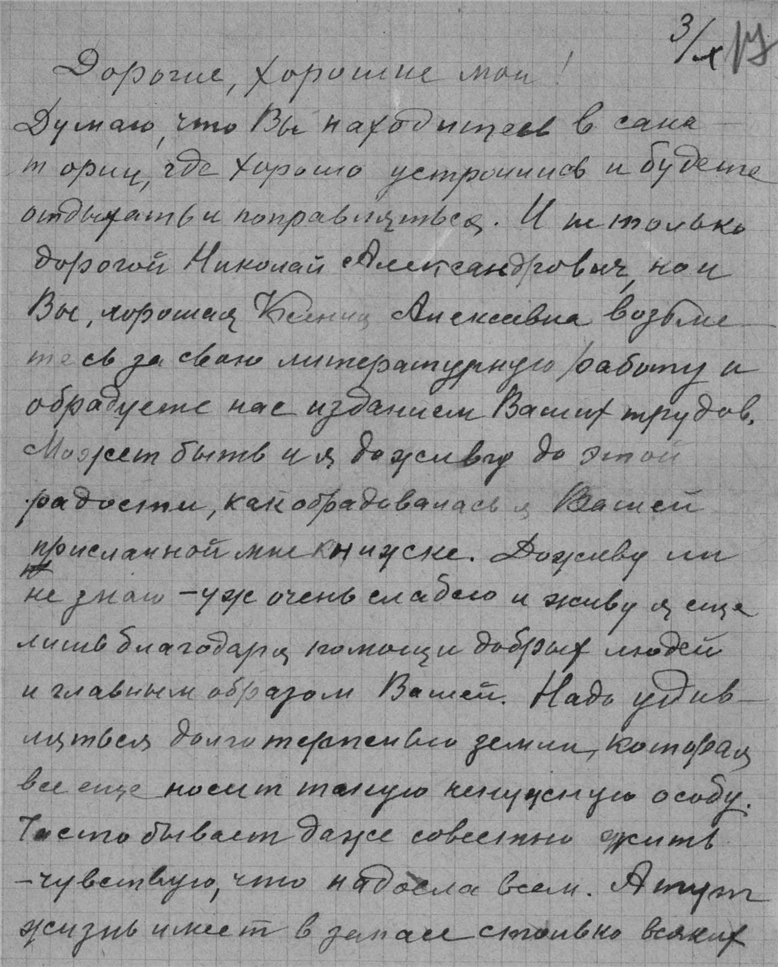 3/X 17
Дорогие, хорошие мои!
Думаю, что Вы находитесь в сана-
тории, где хорошо устроились и будете
отдыхать и поправляться. И не только
дорогой Николай Александрович, но и
Вы, хорошая Ксения Алексеевна возьме-
тесь за свою литературную работу и
обрадуете нас изданием Ваших трудов.
Может быть и я доживу до этой
радости, как обрадовалась я Вашей
присланной мне книжке. Доживу ли
не знаю – уж очень слабею и живу я еще
лишь благодаря помощи добрых людей
и главным образом Вашей. Надо удив-
ляться долготерпенью земли, которая
все еще носит такую ненужную особу.
Часто бывает даже совестно жить
– чувствую, что надоела всем. А тут
жизнь имеет в запасе столько всяких